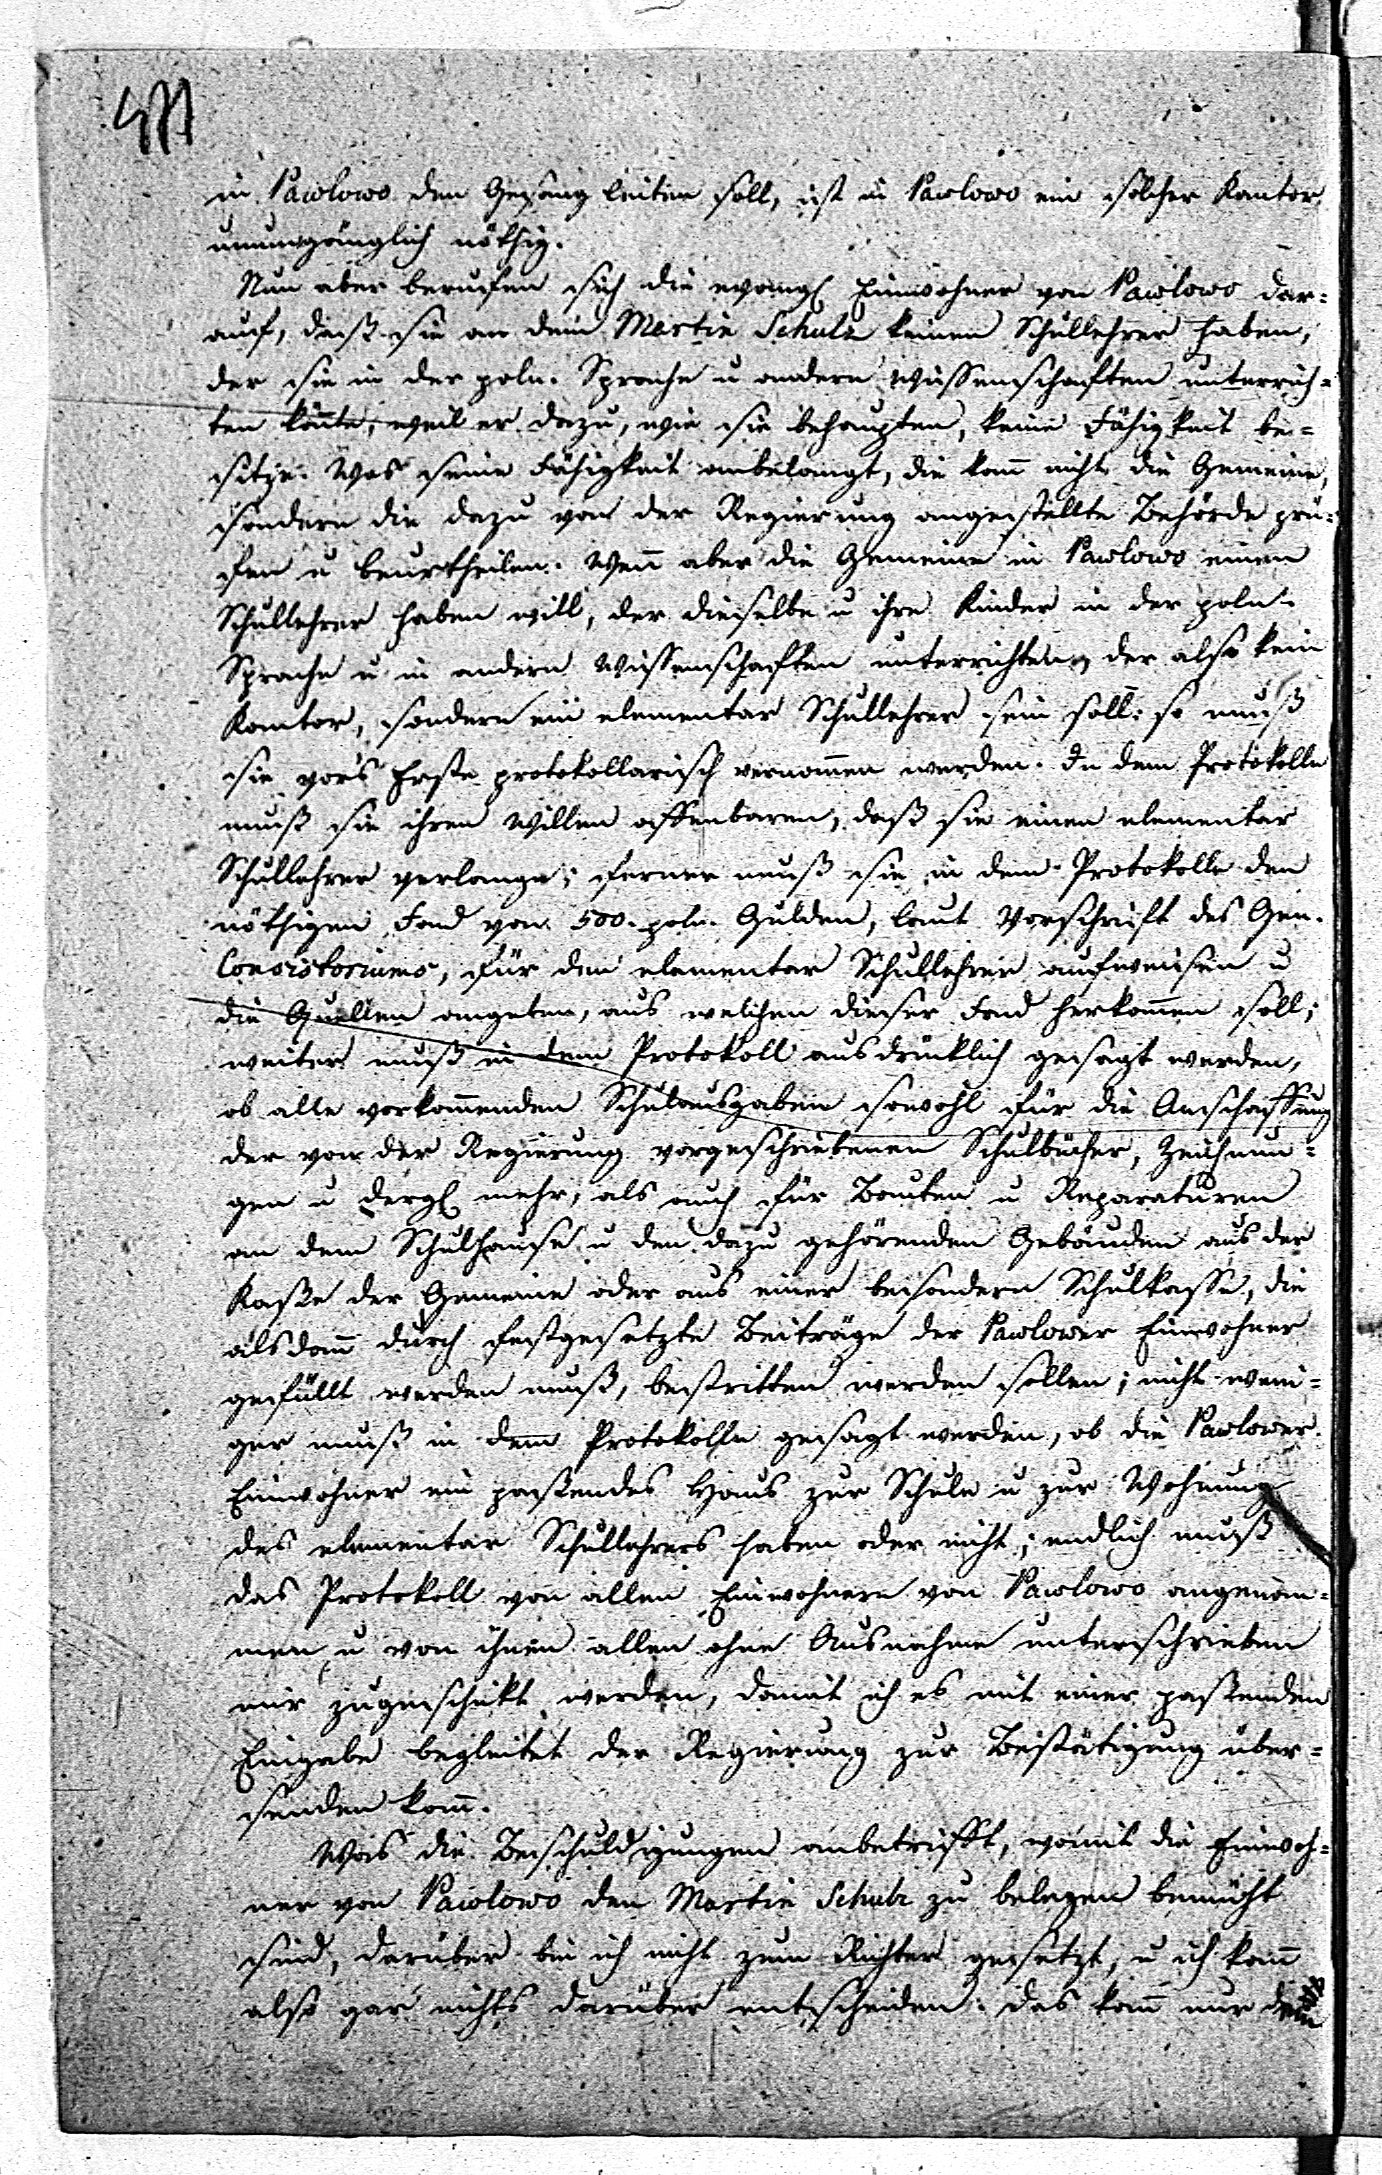 in Pawlowo den Gesang leiten soll, ist in Pawlowo ein solcher Kantor
unumgänglich nöthig.
Nun aber berufen sich die evangl Einwohner von Pawlowo dar=
auf, daß sie an dem Martin Schulz keinen Schullehrer haben,
der sie in der poln. Sprache u andern Wissenschaften unterrich=
ten köñte, weil er dazu, wie sie behaupten, keine Fähigkeit be=
sitze. Was seine Fähigkeit anbelangt, die kañ nicht die Gemeine,
sondern die dazu von der Regierung angestellte Behörde prü=
fen u beurtheilen. Weñ aber die Gemeine in Pawlowo einen
Schullehrer haben will, der dieselbe u ihre Kinder in der poln.
Sprache u in andern Wissenschaften unterrichten, der also kein
Kantor, sondern ein elementar Schullehrer sein soll: so muß
sie vors Erste protokollarisch vernom̄en werden. In dem Protokolle
muß sie ihren Willen offenbaren, daß sie einen elementar
Schullehrer verlange; ferner muß sie in dem Protokolle den
nöthigen Fond von 500. poln. Gulden, laut Vorschrift des Gen.
Consistoriums, für den elementar Schullehrer aufweisen u
die Quellen angeben, aus welchen dieser Fond herkom̄en soll;
weiter muß in dem Protokoll ausdrücklich gesagt werden,
ob alle vorkom̄enden Schulausgaben sowohl für die Anschaffung
der von der Regierung vorgeschriebenen Schulbücher, Zeichnun=
gen u dergl mehr, als auch für Bauten u Reparaturen
an dem Schulhause u den dazu gehörenden Gebäuden aus der
Kaße der Gemeine oder aus einer besondern Schulkasse, die
alsdañ durch festgesetzte Beiträge der Pawlower Einwohner
gefüllt werden muß, bestritten werden sollen; nicht weni=
ger muß in dem Protokolle gesagt werden, ob die Pawlower
Einwohner ein paßendes Haus zur Schule u zur Wohnung
des elementar Schullehrers haben oder nicht; endlich muß
das Protokoll von allen Einwohnern von Pawlowo angenom=
men u von ihnen allen ohne Ausnahme unterschrieben
mir zugeschikt werden, damit ich es mit einer paßenden
Eingabe begleitet der Regierung zur Bestätigung über=
senden kañ.
Was die Beschuldigungen anbetrifft, womit die Einwoh=
ner von Pawlowo den Martin Schulz zu belegen bemüht
sind, darüber bin ich nicht zum Richter gesetzt, u ich kañ
also gar nichts darüber entscheiden. Das kañ nur